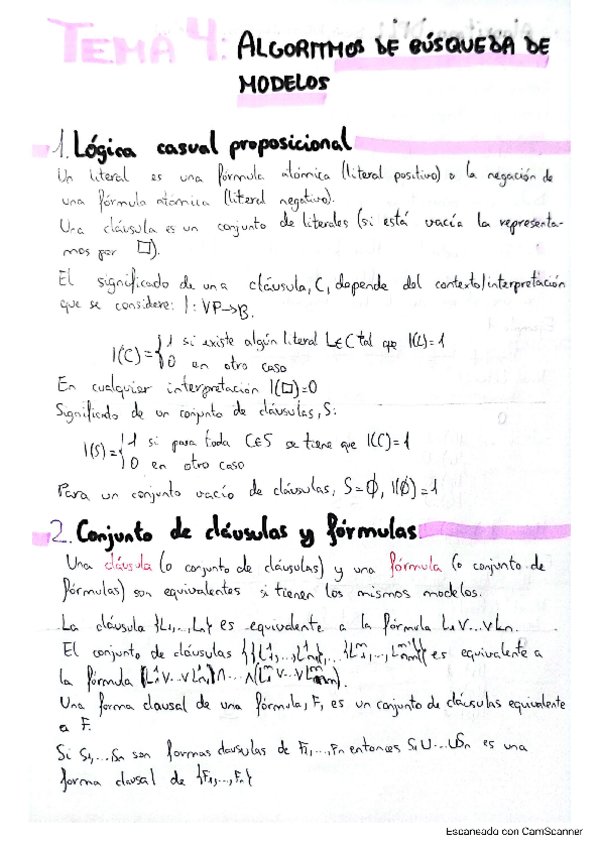 TEMA 4: ALGORITMOS DE BÚSQUEDA DE
MODELOS
1. Lógica casual proposicional
Un literal es una fórmula atómica (literal positivo) o la negación de
una fórmula atómica (literal negativo).
Una cláusula es un conjunto de literales (si está vacía la representa-
mos por □).
El significado de una cláusula, C, depende del contexto/interpretación
que se considere: I: VP→B.
I(C)={1 si existe algún literal L∈C tal que I(L)=1
0 en otro caso
En cualquier interpretación I(□)=0
Significado de un conjunto de cláusulas, S:
I(S)={1 si para toda C∈S se tiene que I(C)=1
0 en otro caso
Para un conjunto vacío de cláusulas, S=∅, I(∅)=1
2. Conjunto de cláusulas y fórmulas
Una cláusula (o conjunto de cláusulas) y una fórmula (o conjunto de
fórmulas) son equivalentes si tienen los mismos modelos.
La cláusula {L1,...,Ln} es equivalente a la fórmula L1 V...V Ln.
El conjunto de cláusulas {{L¹1,...,L¹n1},...,{Lᵐ1,...,Lᵐnm}} es equivalente a
la fórmula (L¹1 V...V L¹n1)∧...∧(Lᵐ1 V...V Lᵐnm).
Una forma clausal de una fórmula, F, es un conjunto de cláusulas equivalente
a F.
Si S1,...Sn son formas clausulas de F1,...,Fn entonces S1U...USn es una
forma clausal de {F1,...,Fn}
Escaneado con CamScanner